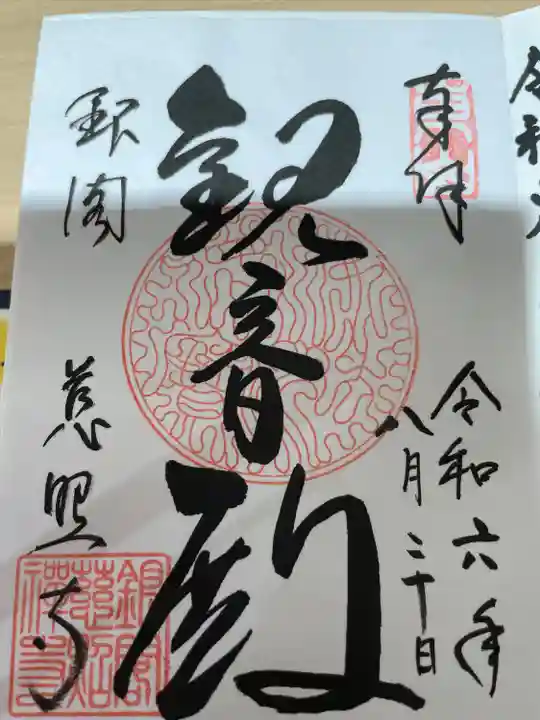 奉拝
令和六年
八月二十日
観音殿
銀閣
慈照寺